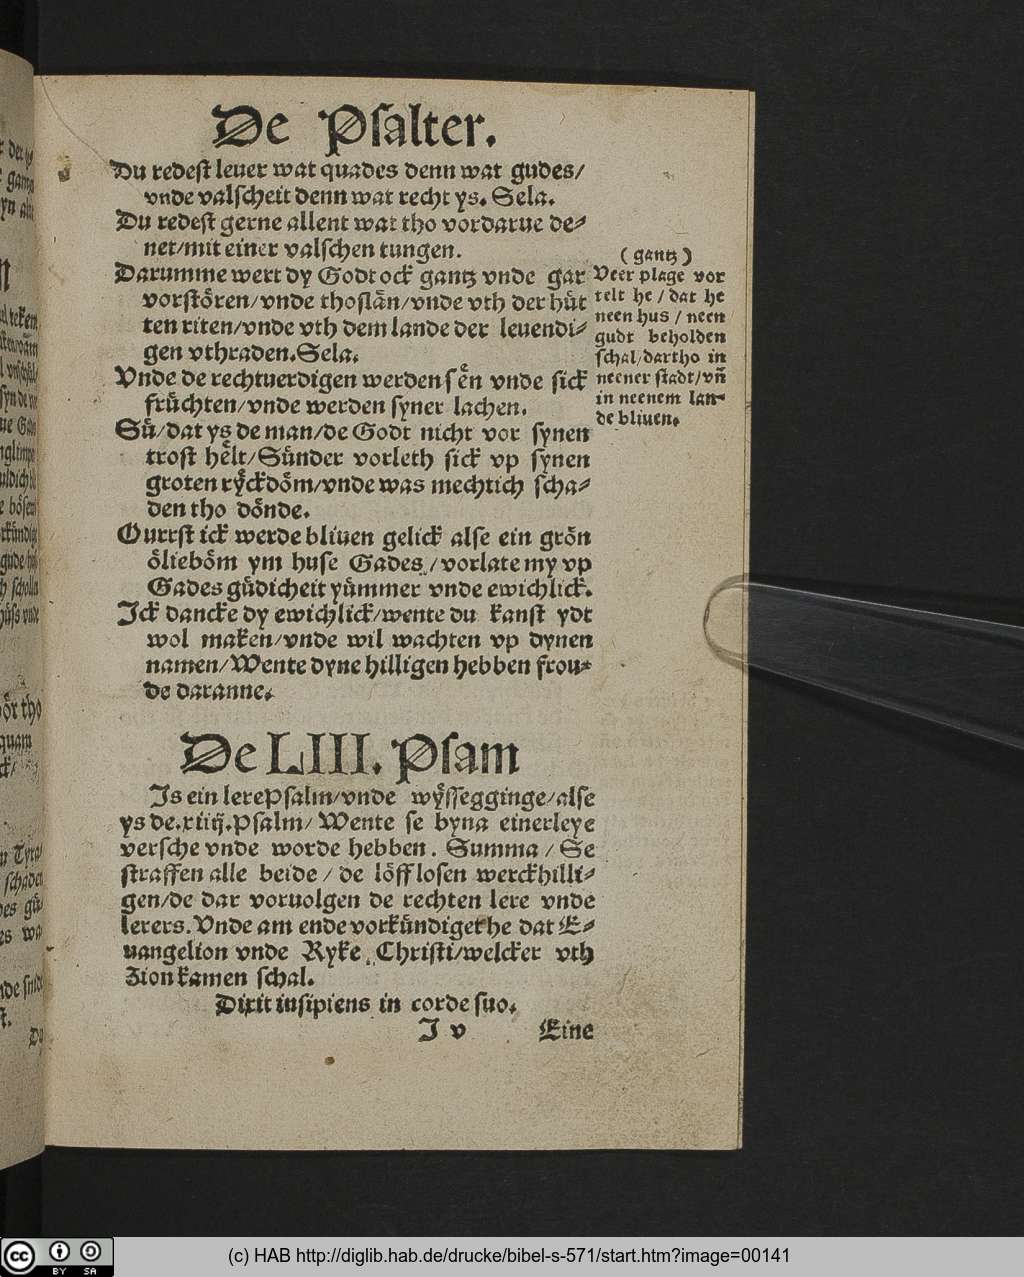 De Psalter.
Du redest leuer wat quades denn wat gudes/
vnde valscheit denn wat recht ys. Sela.
Du redest gerne allent wat tho vordarue de⸗
net/mit einer valschen tungen.
Darumme wert dy Godt ock gantz vnde gar
vorstören/vnde thoslān/vnde vth der hüt
ten riten/vnde vth dem lande der leuendi⸗
gen vthraden.Sela.
Vnde de rechtuerdigen werden sēn vnde sick
früchten/vnde werden syner lachen.
Sü/dat ys de man/de Godt nicht vor synen
trost hēlt/Sünder vorleth sick vp synen
groten rÿckdöm/vnde was mechtich scha⸗
den tho dönde.
Ouerst ick werde bliuen gelick alse ein grön
ölieböm ym huse Gades/vorlate my vp
Gades güdicheit yümmer vnde ewichlick.
Ick dancke dy ewichlick/wente du kanst ydt
wol maken/vnde wil wachten vp dynen
namen/Wente dyne hilligen hebben frou⸗
de daranne.
(gantz)
Veer plage vor
telt he/dat he
neen hus/neen
gudt beholden
schal/dartho in
neener stadt/vñ
in neenem lan⸗
de bliuen.
De LIII. Psam
Is ein lerePsalm/vnde wÿssegginge/alse
ys de.xiiij.Psalm/Wente se byna einerleye
versche vnde worde hebben. Summa/Se
straffen alle beide/de löfflosen werckhilli⸗
gen/de dar voruolgen de rechten lere vnde
lerers.Vnde am ende vorkündiget he dat E⸗
uangelion vnde Ryke Christi/welcker vth
Zion kamen schal.
Dixit insipiens in corde suo.
J v Eine
(c) HAB http://diglib.hab.de/drucke/bibel-s-571/start.htm?image=00141
cc BY SA